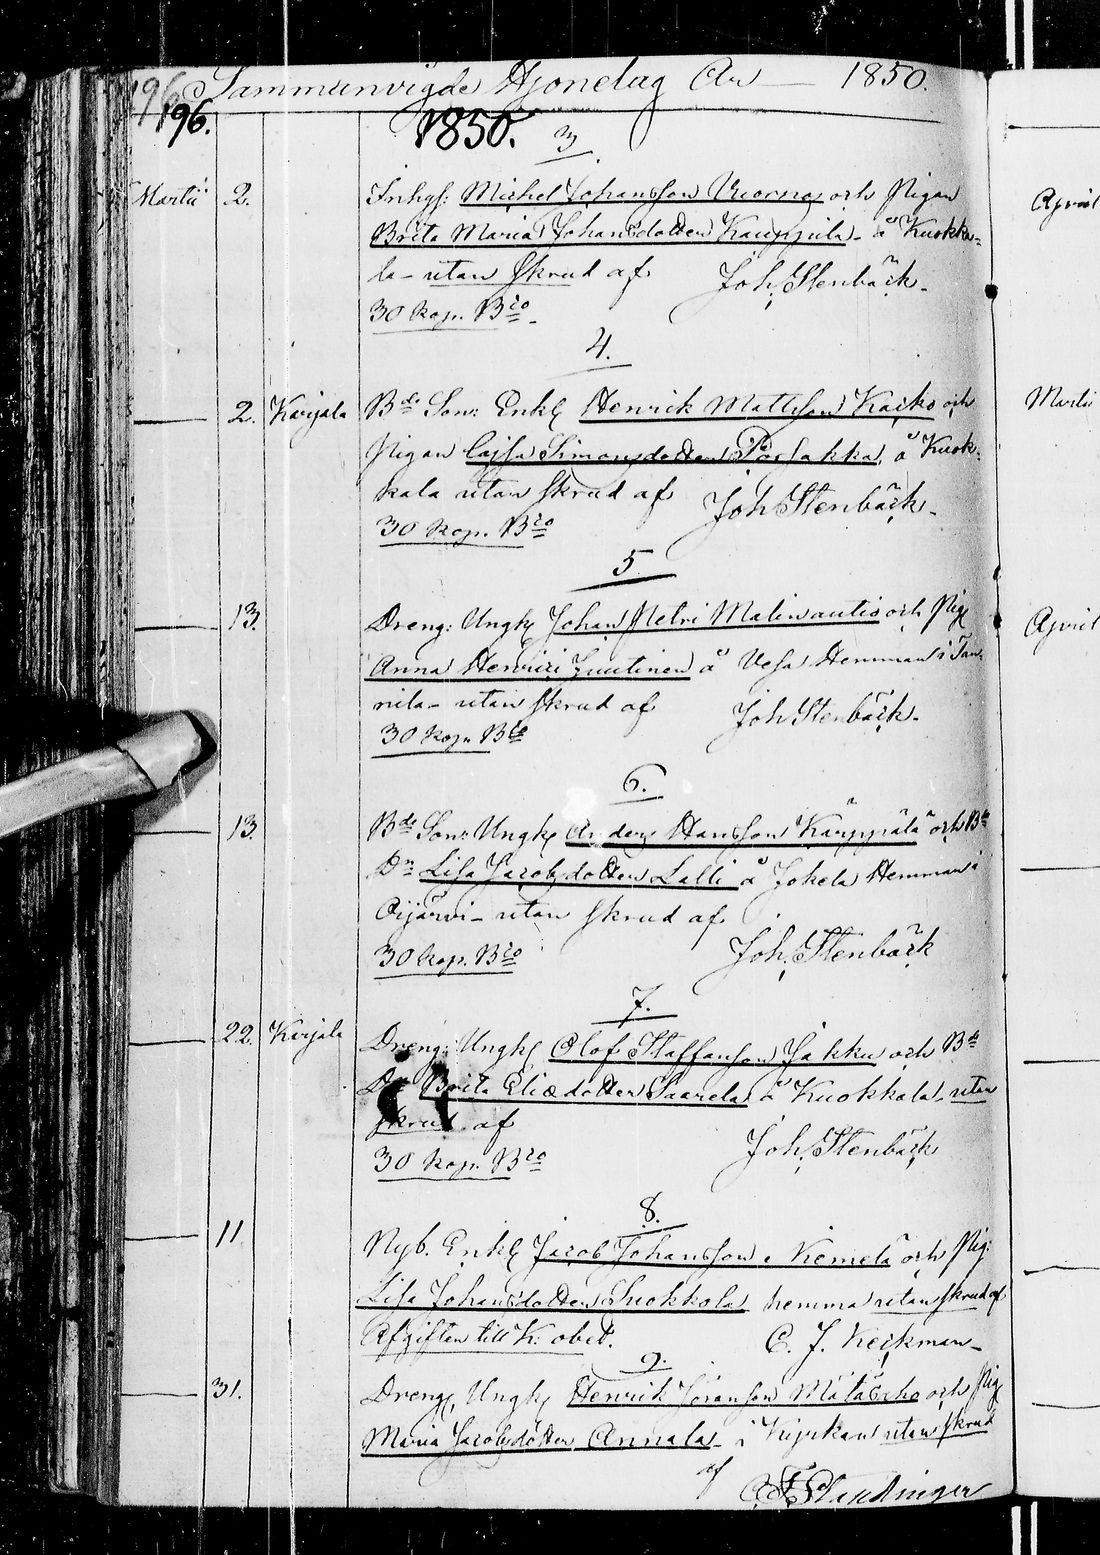 196 Sammanvigde Hjonelag År 1850.
196. 1850.
3
Martii 2. Inhys: Michel Johansson Vuorna och Pigan
Brita Maria Johansdotter Kauppila å Kuokka-
la utan skrud af Joh. Stenbäck.
30 kop. B:co
4.
2. Karjala Bde Son: Enkl Henrik Mattsson Kaiko och
Pigan Cajsa Simonsdotter Porsakka å Kuok-
kala utan skrud af Joh Stenbäck.
30 kop. B:co
5
13. Dreng: Ungk Johan Petri Malinautio och Pig
Anna Henrici Juutinen å Vesa Hemman i Tan
nila utan skrud af Joh Stenbäck.
30 kop. B:co
6.
13 Bde Son: Ungk Anders Hansson Karppälä och Bde
Dr Lisa Jacobsdotter Lalli å Jokela Hemman i
Oijärvi utan skrud af
30 kop. B:co Joh. Stenbäck
7.
22. Karjala Dreng: Ungk Olof Staffansson Jakku och Bde
Brita Eliædotter Saarela å Kuokkala utan
skrud af
30 kop. B:co Joh. Stenbäck
8.
11. Nyb. Enkl Jacob Johansson Kemela och Pig:
Lisa Johansdotter Suokkola hemma utan skrud af
Afgiften till K: obet. C. J. Keckman
9.
31. Dreng, Ungk Henrik Göransson och Pig
Maria Jacobsdotter Annala i Kyrkan utan skrud
af
April
Martii
April